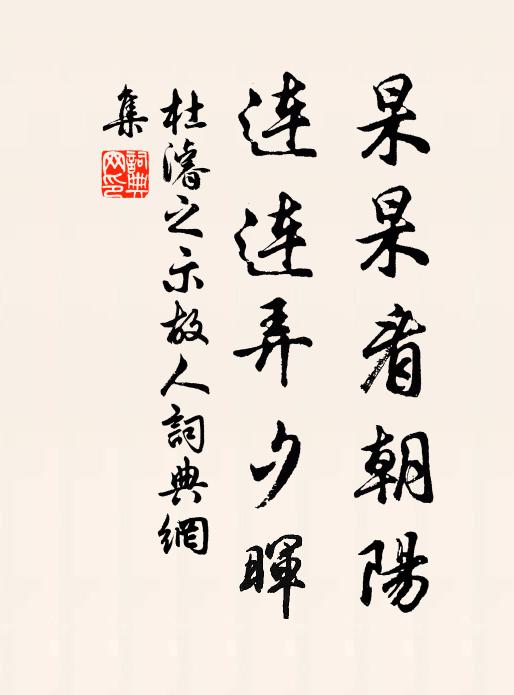 杲杲看朝陽
連連弄夕暉
杜濬之示故人詞典網
集
詞典
网印